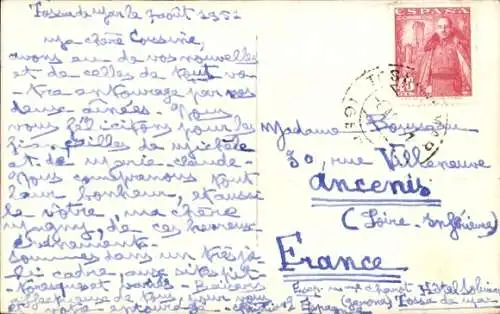 Tossa de Mar le 7 août 1951
Ma chère Cousine,
avons eu de vos nouvelles
et de celles de tout vo-
tre entourage par nos
deux aînés - Nous
vous félicitons pour les
fiançailles de Michèle
et de Marie-Claude -
Nous comprenons tout
leur bonheur, et aussi
le vôtre, ma chère
de ces heureux
événements -
sommes dans un très jo-
li cadre, aux sites pit-
toresques et variés - Baisers
affectueux de tous, pour vous
et votre entourage -
ESPAÑA
Madame
30, rue Villeneuve
Ancenis
(Loire-Inférieure)
France
Hôtel
(Gerona) Tossa de Mar
Espagne